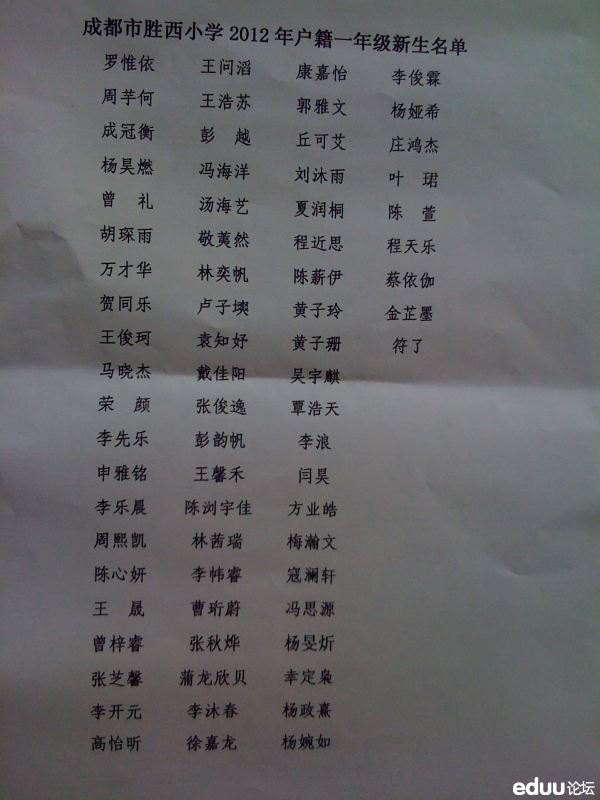 成都市胜西小学2012年户籍一年级新生名单
罗惟依 王问滔 康嘉怡 李俊霖
周芋何 王浩苏 郭雅文 杨娅希
成冠衡 彭 越 丘可艾 庄鸿杰
杨昊燃 冯海洋 刘沐雨 叶 珺
曾 礼 汤海艺 夏润桐 陈 萱
胡琛雨 敬荑然 程近思 程天乐
万才华 林奕帆 陈薪伊 蔡依伽
贺同乐 卢子塽 黄子玲 金芷墨
王俊珂 袁知妤 黄子珊 符了
马晓杰 戴佳阳 吴宇麒
荣 颜 张俊逸 覃浩天
李先乐 彭韵帆 李浪
申雅铭 王馨禾 闫昊
李乐晨 陈浏宇佳 方业皓
周熙凯 林茜瑞 梅瀚文
陈心妍 李帏睿 寇澜轩
王 晟 曹珩蔚 冯思源
曾梓睿 张秋烨 杨旻炘
张芝馨 蒲龙欣贝 幸定枭
李开元 李沐春 杨政熹
高怡昕 徐嘉龙 杨婉如
eduu论坛